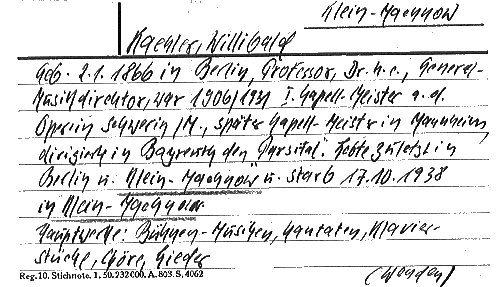 Klein-Machnow
Kaehler, Willibald
Geb. 2.1. 1866 in Berlin, Professor, Dr. h.c., General-
Musikdirektor, war 1906/1931 I. Kapell-Meister a. d.
Oper in Schwerin/M., später Kapell-Meister in Mannheim,
dirigierte in Bayreuth den "Parsifal". Lebte zuletzt in
Berlin u. Klein-Machnow u. starb 17.10.1938
in Klein-Machnow.
Hauptwerke: Bühnen-Musiken, Kantaten, Klavier-
stücke, Chöre, Lieder
Reg. 10. Stichnote. 1, 50. 232000. A. 803. S. 4062